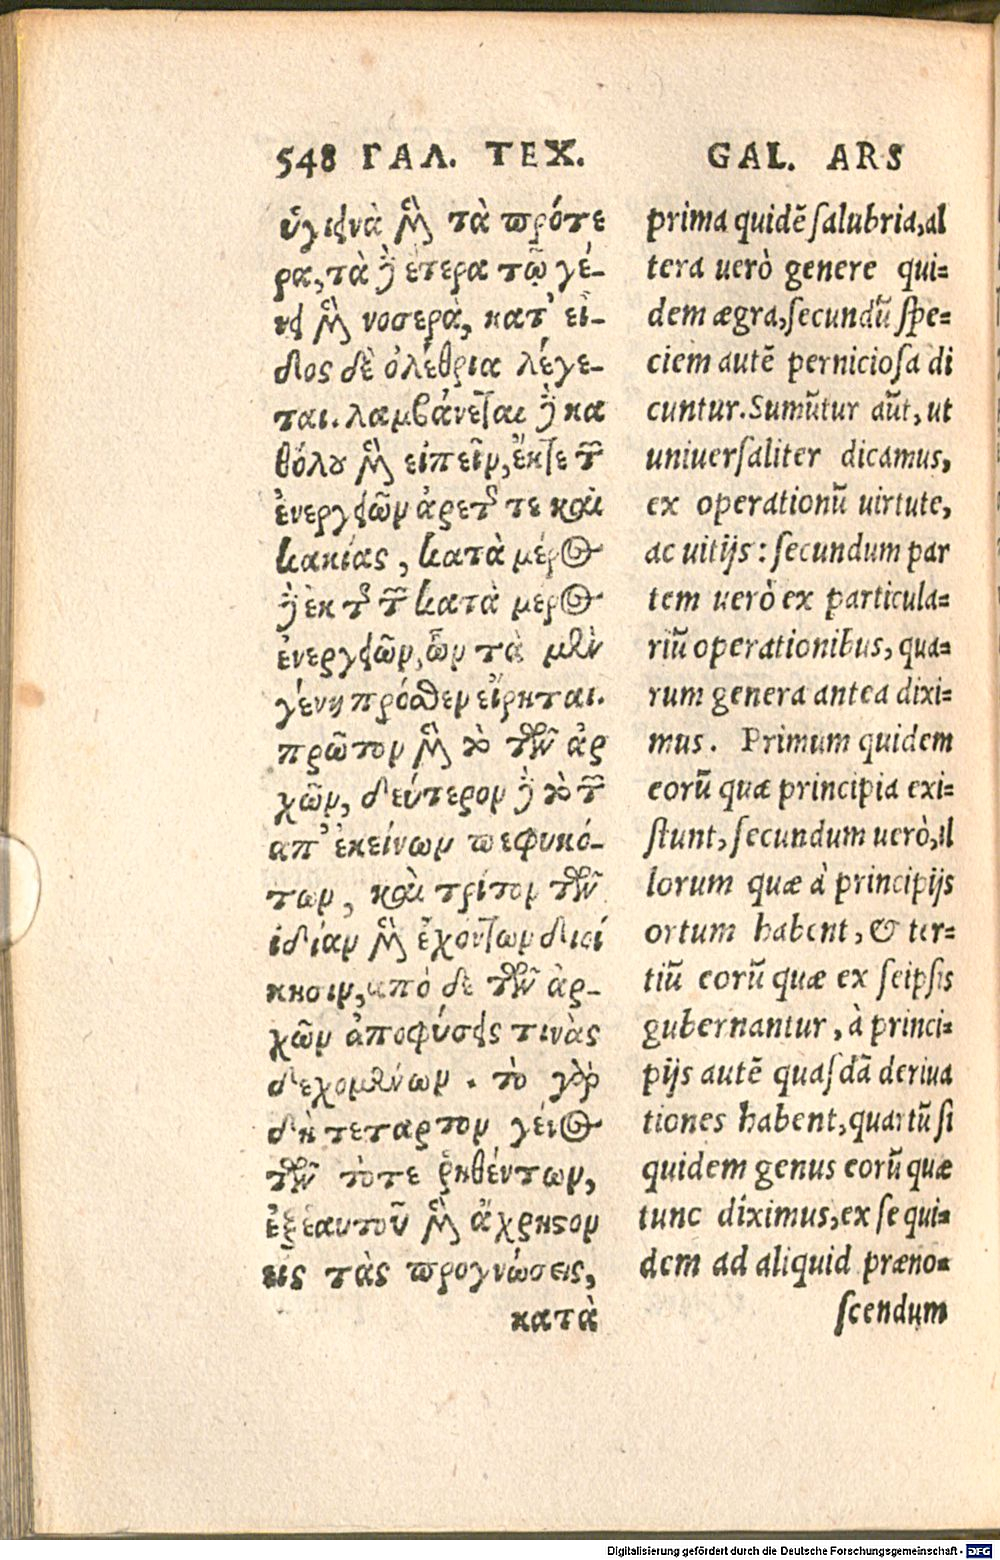 548 ΓΑΛ. ΤΕΧ.
ὑγιεινὰ μὲν τὰ πρότε
ρα, τὰ δὲ ἕτερα τῷ γέ-
νει μὲν νοσερὰ, κατ' εἶ-
δος δὲ ὀλέθρια λέγε-
ται. λαμβάνεται δὲ κα
θόλου μὲν εἰπεῖν, ἔκτε τῆς
ἐνεργειῶν ἀρετῆς τε καὶ
κακίας, κατὰ μέρος
δὲ ἐκ τῆς τῶν κατὰ μέρος
ἐνεργειῶν, ὧν τὰ μὲν
γένη πρόσθεν εἴρηται.
πρῶτον μὲν τὸ τῶν ἀρ
χῶν, δεύτερον δὲ τὸ τῶν
απ' ἐκείνων πεφυκό-
των, καὶ τρίτον τῶν
ἰδίαν μὲν ἐχόντων διοί
κησιν, ἀπὸ δὲ τῶν ἀρ-
χῶν ἀποφύσεις τινὰς
δεχομένων. τὸ γὰρ
δὴ τεταρτον γένος
τῶν τότε ῥηθέντων,
ἐξ ἑαυτοῦ μὲν ἄχρηστον
εἰς τὰς προγνώσεις,
κατὰ
GAL. ARS
prima quidē salubria, al
tera uerò genere qui=
dem ægra, secundū spe=
ciem autē perniciosa di
cuntur. Sumūtur aūt, ut
uniuersaliter dicamus,
ex operationū uirtute,
ac uitijs: secundum par
tem uerò ex particula=
riū operationibus, qua=
rum genera antea dixi=
mus. Primum quidem
eorū quæ principia exi=
stunt, secundum uerò, il
lorum quæ à principijs
ortum habent, & ter=
tiū eorū quæ ex seipsis
gubernantur, à princi=
pijs autē quasdā deriua
tiones habent, quartū si
quidem genus eorū quæ
tunc diximus, ex se qui=
dem ad aliquid præno=
scendum
Digitalisierung gefördert durch die Deutsche Forschungsgemeinschaft - DFG